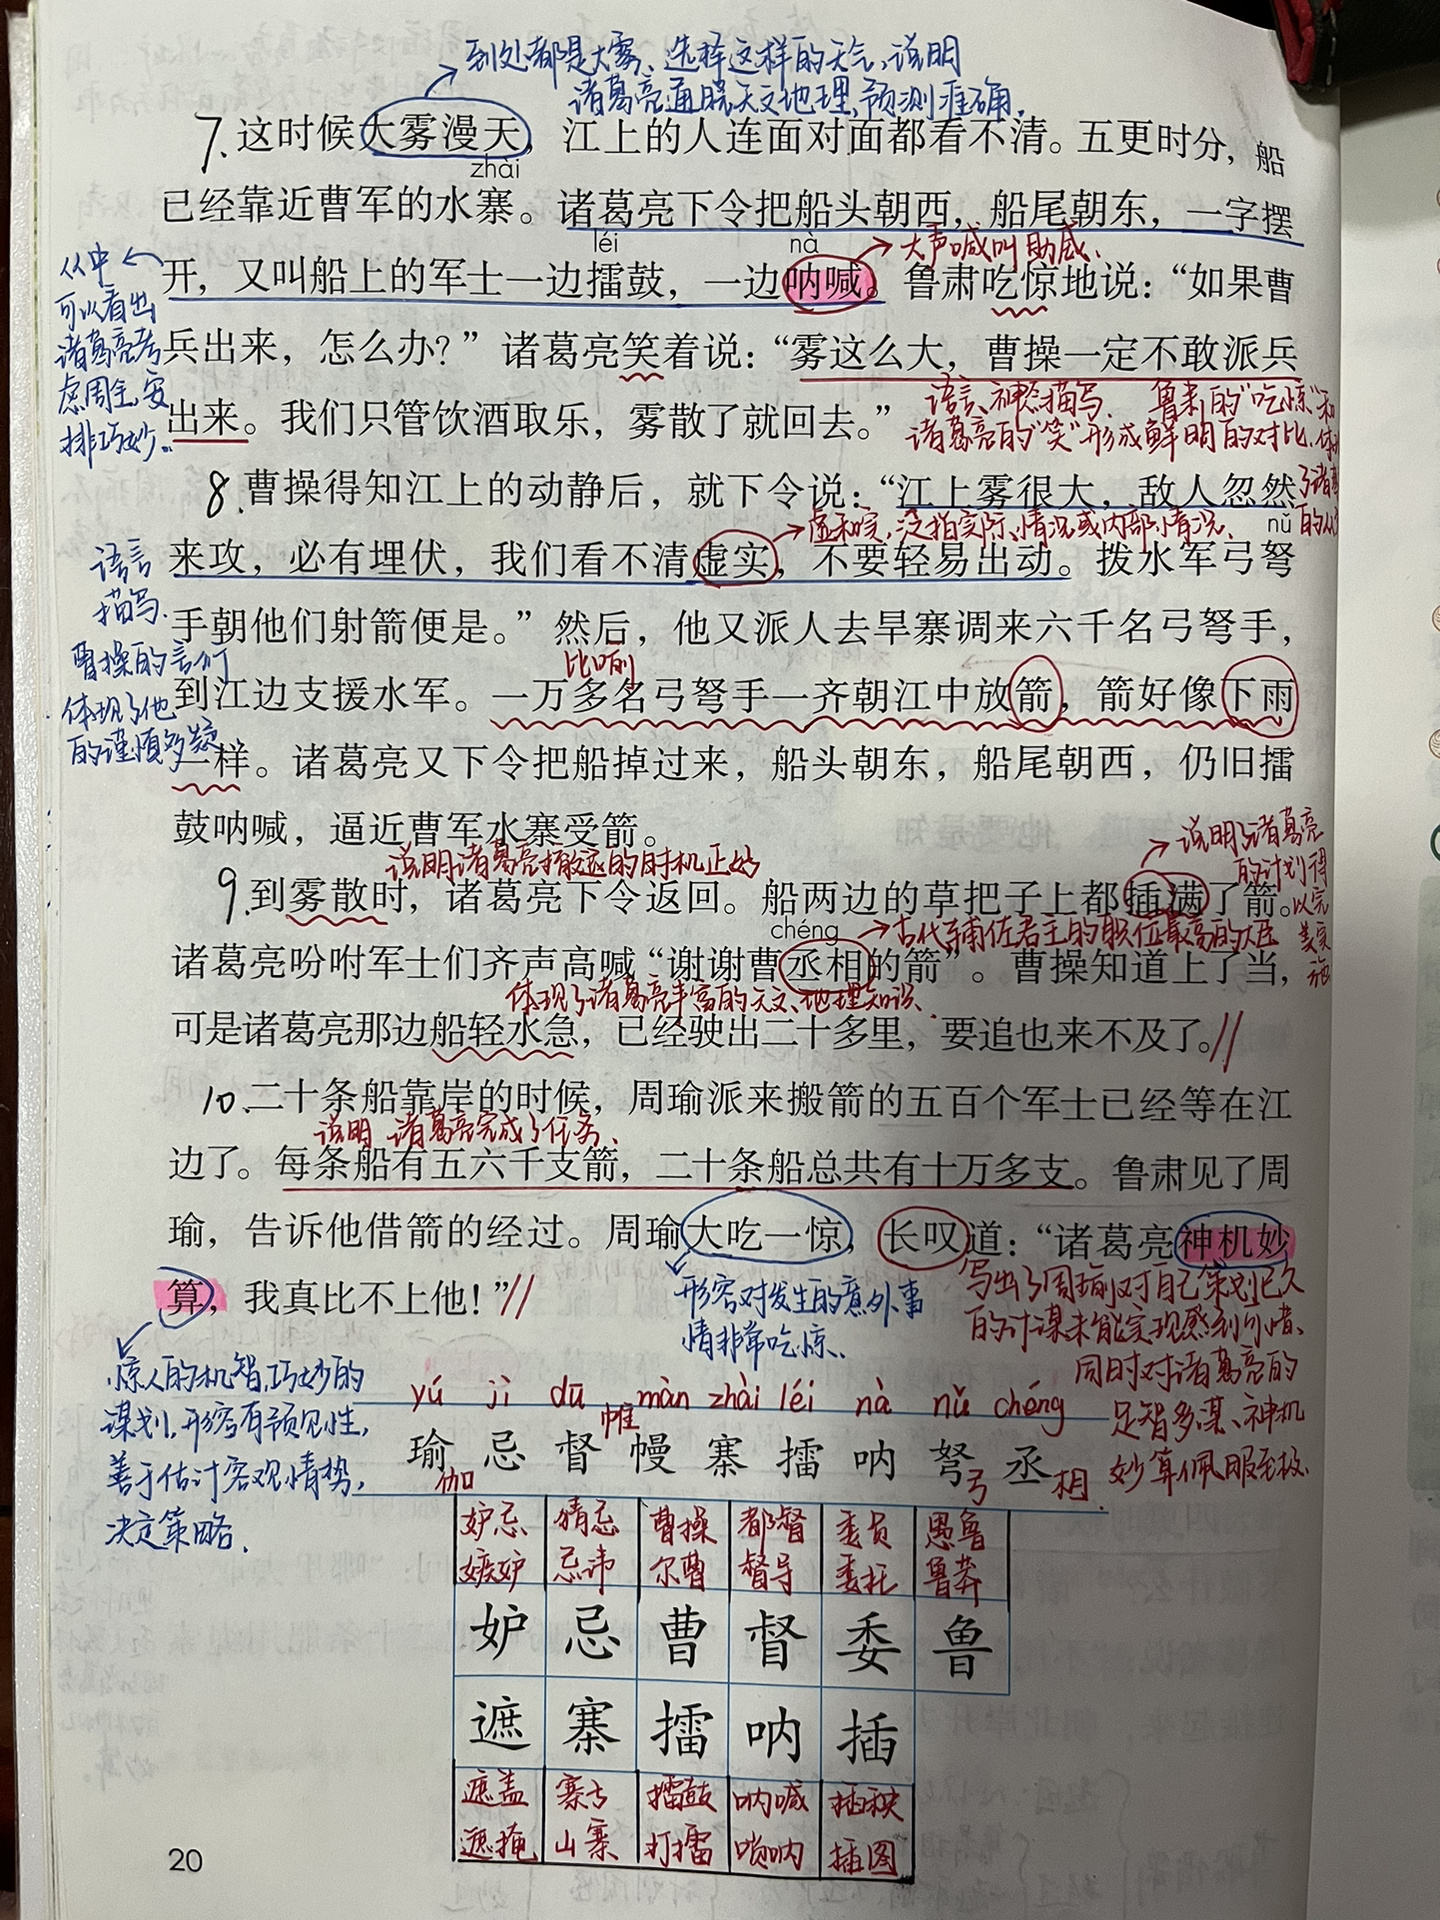 到处都是大雾、选择这样的天气、说明
诸葛亮通晓天文地理、预测准确。
7.这时候大雾漫天，江上的人连面对面都看不清。五更时分，船
zhài
已经靠近曹军的水寨。诸葛亮下令把船头朝西，船尾朝东，一字摆
léi nà
大声喊叫助威、
开，又叫船上的军士一边擂鼓，一边呐喊。鲁肃吃惊地说：“如果曹
从中
可以看出
诸葛亮考
虑周全,安
排巧妙。
兵出来，怎么办？”诸葛亮笑着说：“雾这么大，曹操一定不敢派兵
语言、神态描写、鲁肃的“吃惊”和
出来。我们只管饮酒取乐，雾散了就回去。”
诸葛亮的“笑”形成鲜明的对比、体现
了诸葛
8.曹操得知江上的动静后，就下令说：“江上雾很大，敌人忽然
虚和实，泛指实际情况或内部情况、
nǔ
来攻，必有埋伏，我们看不清虚实，不要轻易出动。拨水军弓弩
语言
描写.
手朝他们射箭便是。”然后，他又派人去旱寨调来六千名弓弩手，
曹操的言行
体现了他
的谨慎多疑
比喻
到江边支援水军。一万多名弓弩手一齐朝江中放箭，箭好像下雨
一样。诸葛亮又下令把船掉过来，船头朝东，船尾朝西，仍旧擂
鼓呐喊，逼近曹军水寨受箭。
说明诸葛亮撤退的时机正好
说明了诸葛亮
的计划得
以完
美实
施
9.到雾散时，诸葛亮下令返回。船两边的草把子上都插满了箭。
chéng
古代辅佐君主的职位最高的大臣
诸葛亮吩咐军士们齐声高喊“谢谢曹丞相的箭”。曹操知道上了当，
体现了诸葛亮丰富的天文、地理知识、
可是诸葛亮那边船轻水急，已经驶出二十多里，要追也来不及了。//
10.二十条船靠岸的时候，周瑜派来搬箭的五百个军士已经等在江
说明诸葛亮完成了任务、
边了。每条船有五六千支箭，二十条船总共有十万多支。鲁肃见了周
瑜，告诉他借箭的经过。周瑜大吃一惊，长叹道：“诸葛亮神机妙
算，我真比不上他！”//
形容对发生的意外事
情非常吃惊、
写出了周瑜对自己策划已久
的计谋未能实现感到可惜、
同时对诸葛亮的
足智多谋、神机
妙算佩服至极、
惊人的机智,巧妙的
谋划,形容有预见性,
善于估计客观情势,
决定策略、
yú jì dū màn zhài léi nà nǔ chéng
帷
瑜 忌 督 幔 寨 擂 呐 弩 丞
弓 相
妒忌 猜忌 曹操 都督 委员 愚鲁
嫉妒 忌讳 尔曹 督导 委托 鲁莽
妒 忌 曹 督 委 鲁
遮 寨 擂 呐 插
遮盖 寨子 擂鼓 呐喊 插秧
遮掩 山寨 打擂 唢呐 插图
20